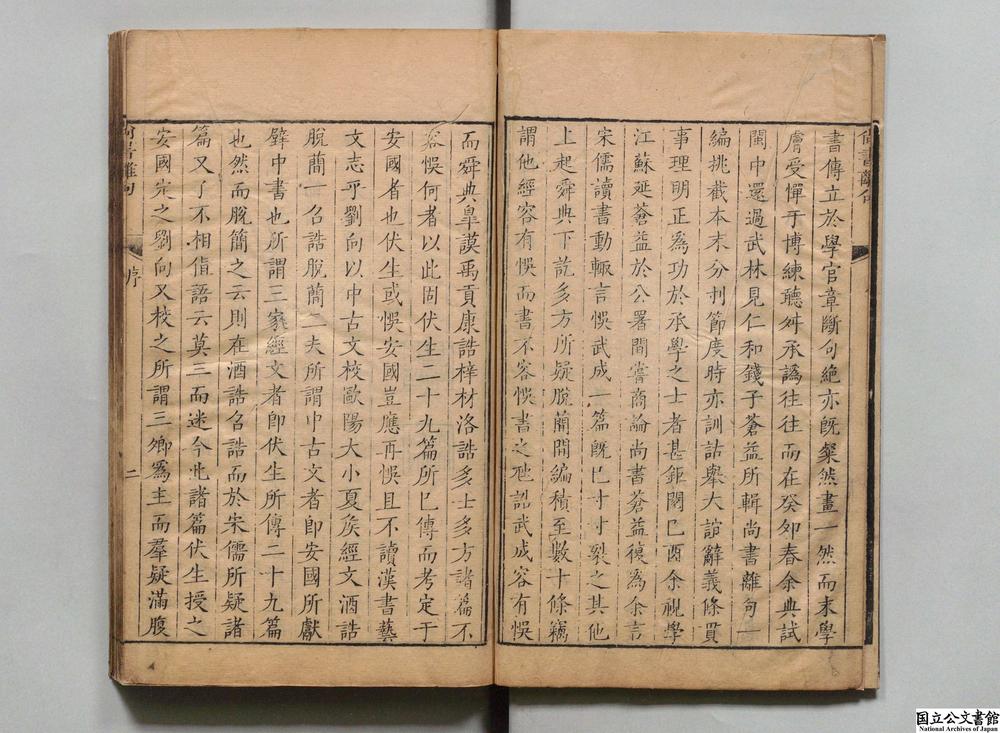 書傳立於學官章斷句絶亦旣粲然畫一然而末學
膚受憚于博練聽舛承譌往往而在癸卯春余典試
閩中還過武林見仁和錢子蒼益所輯尚書離句一
編挑截本末分刌節度時亦訓詁舉大誼辭義條貫
事理明正爲功於承學之士者甚鉅閱己酉余視學
江蘇延蒼益於公署間嘗商論尚書蒼益復爲余言
宋儒讀書動輒言悞武成一篇旣已寸寸裂之其他
上起舜典下訖多方所疑脫蕳閒編積至數十條竊
謂他經容有悞而書不容悞書之他詔武成容有悞
而舜典臯謨禹貢康誥梓材洛誥多士多方諸篇不
容悞何者以此固伏生二十九篇所已傳而考定于
安國者也伏生或悞安國豈應再悞且不讀漢書藝
文志乎劉向以中古文校歐陽大小夏矦經文酒誥
脫簡一召誥脫簡二夫所謂中古文者卽安國所獻
壁中書也所謂三家經文者卽伏生所傳二十九篇
也然而脫簡之云則在酒誥召誥而於宋儒所疑諸
篇又了不相值語云莫三而迷今此諸篇伏生授之
安國定之劉向又校之所謂三鄉爲主而羣疑滿腹
尚書離句
序
二
国立公文書館
National Archives of Japan